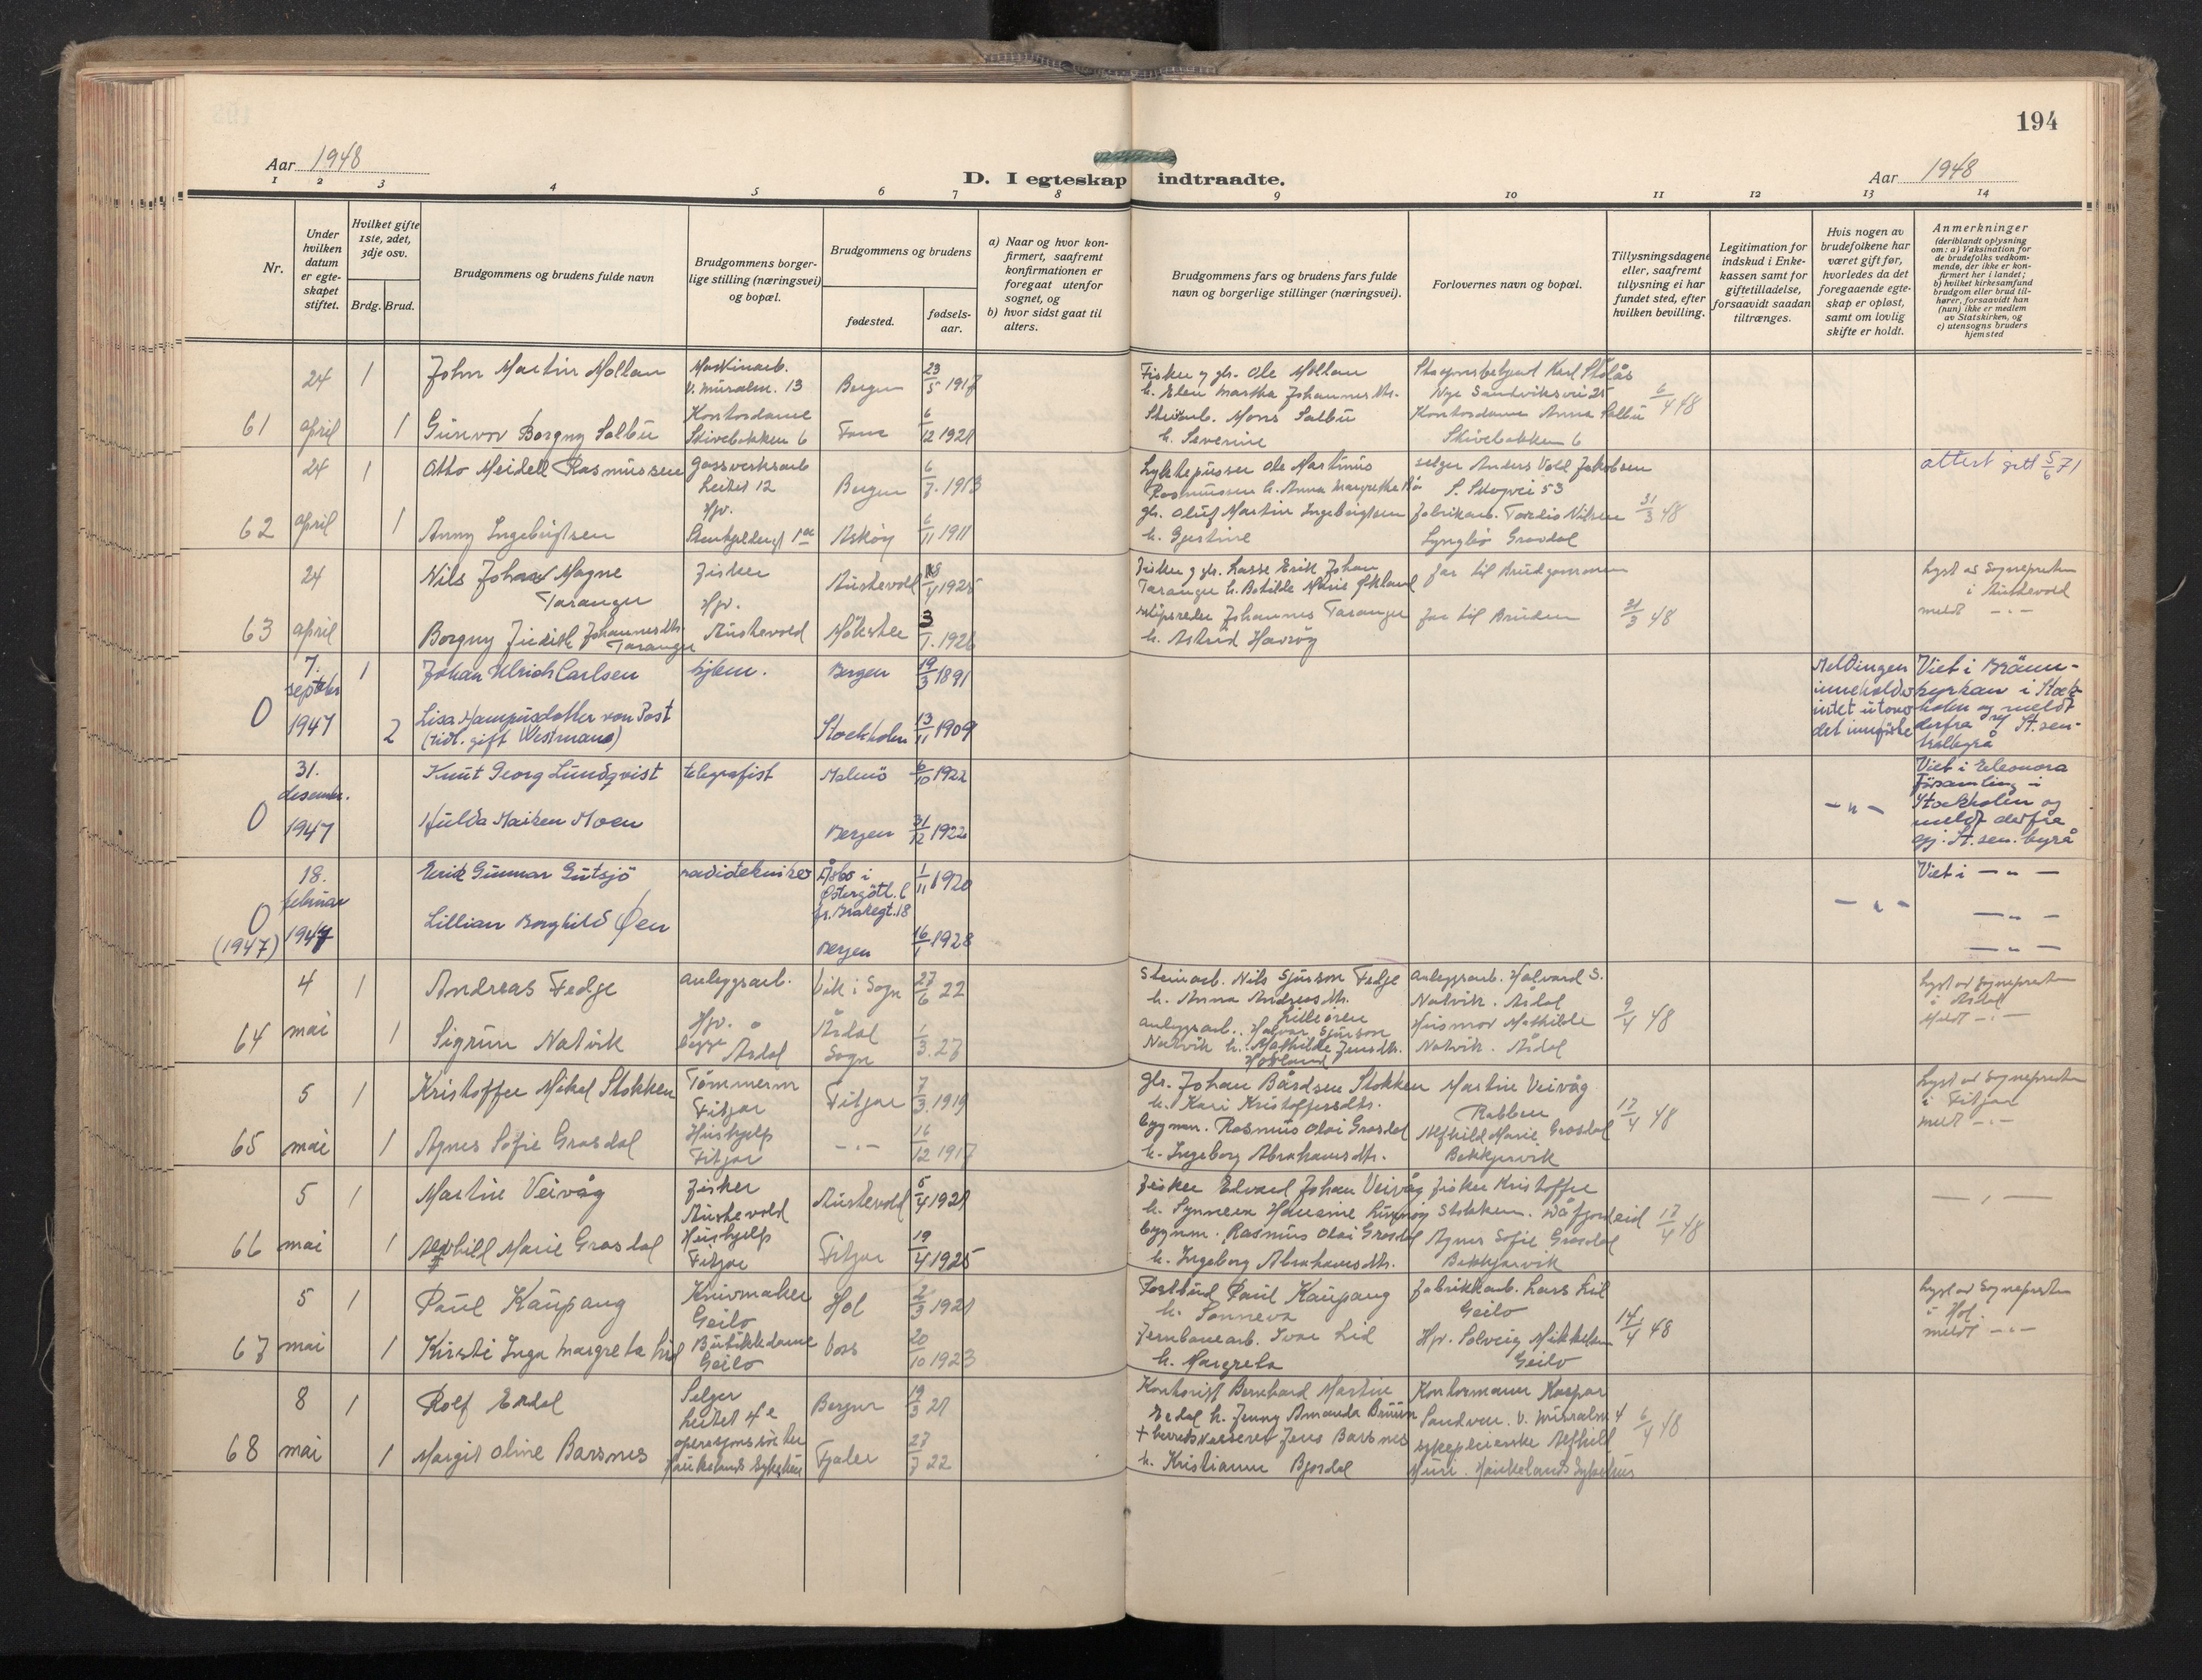 194
Aar 1948
D. I egteskap indtraadte.
Aar 1948
1 2 3 4 5 6 7 8 9 10 11 12 13 14
Nr.
Under hvilken datum er egteskapet stiftet.
Hvilket gifte 1ste, 2det, 3dje osv.
Brdg. Brud.
Brudgommens og brudens fulde navn
Brudgommens borgerlige stilling (næringsvei) og bopæl.
Brudgommens og brudens
fødested.
fødselsaar.
a) Naar og hvor konfirmert, saafremt konfirmationen er foregaat utenfor sognet, og
b) hvor sidst gaat til alters.
Brudgommens fars og brudens fars fulde navn og borgerlige stillinger (næringsvei).
Forlovernes navn og bopæl.
Tillysningsdagene eller, saafremt tillysning ei har fundet sted, efter hvilken bevilling.
Legitimation for indskud i Enkekassen samt for giftetilladelse, forsaavidt saadan tiltrænges.
Hvis nogen av brudefolkene har været gift før, hvorledes da det foregaaende egteskap er opløst, samt om lovlig skifte er holdt.
Anmerkninger
(deriblandt oplysning om: a) Vaksination for de brudefolks vedkommende, der ikke er konfirmert her i landet; b) hvilket kirkesamfund brudgom eller brud tilhører, forsaavidt han (hun) ikke er medlem av Statskirken, og c) utensogns bruders hjemsted
61 24 april
1 John Martin Mollan Maskinarb. V. Muralm. 13 Bergen 23/5 1917
Fisker og gbr. Ole Mollan h. Elen Martha Johannesdtr.
Karl Stølås Nye Sandviksvei 25
6/4 48
1 Gunvor Borgny Salbu Kontordame Skivebakken 6 Fana 6/12 1921
Mons Salbu h. Severine
Kontordame Anna Salbu Skivebakken 6
62 24 april
1 Otto Meidell Rasmussen Gassverksarb Leitet 12 Bergen 6/7. 1913
Lyktepusser Ole Martinus Rasmussen h. Anna Margrethe
Selger Anders Vold Jakobsen S. Skogvei 53
31/3 48
attest gitt 5/6 71
1 Anny Ingebrigtsen Hpr. Askøy 6/11 1911
gbr. Oluf Martin Ingebrigtsen h. Gjertine
Fabrikarb. Tordis Nilsen Lyngbø Gravdal
63 24 april
1 Nils Johan Magne Taranger Fisker Austevold 18/4 1925
Fisker og gbr. Lasse Erik Johan Taranger h. Botilde Marie Økland
far til Brudgommen
31/3 48
Lyst av Sognepresten i Austevold
meldt -"-
1 Borgny Johannesdtr. Taranger Hpr. Austevold Møkster 3/1. 1926
Skipsreder Johannes Taranger h. Astrid Havrøy
far til Bruden
0 7. september 1947
1 Johan Ulrich Carlsen Bergen 19/3 1891
Meldingen inneholder intet utover det innførte
Viet i Brännkyrkan i Stockholm og meldt derfra gj St. sentralbyrå
2 Lisa Hampusdotter von Post (tidl. gift Westman) Stockholm 13/11 1909
0 31. desember. 1947
Knut Georg Lundqvist telegrafist Malmö 6/10 1922
- " -
Viet i Eleonora Församling i Stockholm og meldt derfra gj. St. sen. byrå
Hulda Maisen Moen Bergen 31/12 1922
0 (1947) 18. februar 1947
Erik Gunnar Gutsjö radiotekniker Åsbo i Östergötl. 1/11 1920
- " -
Viet i - " -
- " -
- " -
Lillian Borghild Øen Bergen 16/1 1928
64 4 mai
1 Andreas Fedje anleggsarb. Vik i Sogn 27/6 22
Steinarb. Nils Sjurson Fedje h. Anna Andreasdtr. Lilleøren
anleggsarb. Halvard S. Natvik. Årdal
9/4 48
Lyst av Sognepresten i Årdal
Meldt -"-
1 Sigrun Natvik Hpr. Begge Årdal Årdal Sogn 1/3. 27
anleggsarb. Halvar Sjurson Natvik h. Mathilde Jensdtr. Hovland
Husmor Mathilde Natvik. Årdal
65 5 mai
1 Kristoffer Mikal Stokken Tømmerm Fitjar Fitjar 7/3. 1919
gbr. Johan Bårdsen Stokken h. Kari Kristoffersdtr.
Martin Veivåg Rabben
17/4 48
Lyst av Sognepresten i Fitjar
meldt -"-
1 Agnes Sofie Grasdal Hushjelp Fitjar -"- 16/12 1917
bygnm. Rasmus Olai Grasdal h. Ingeborg Abrahamsdtr.
Alfhild Marie Grasdal Bekkjarvik
66 5 mai
1 Martin Veivåg Fisker Austevold Austevold 5/4 1921
Fisker Edvard Johan Veivåg h. Synneva Hansine
Fisker Kristoffer Stokken.
17/4 48
- " -
1 Alfhild Marie Grasdal Hushjelp Fitjar Fitjar 19/4 1925
bygnm. Rasmus Olai Grasdal h. Ingeborg Abrahamsdtr.
Agnes Sofie Grasdal Bekkjarvik
67 5 mai
1 Paul Kaupang Knivmaker Geilo Hol 2/3 1921
Postbud Paul Kaupang h. Sonneva
Fabrikkarb. Lars Lid Geilo
14/4 48
Lyst av Sognepresten i Hol.
meldt -"-
1 Kirsti Inga Margreta Lid Butikkdame Geilo Voss 20/10 1923
Jernbanearb. Ivar Lid h. Margreta
Hpr. Solveig Mikkelsen Geilo
68 8 mai
1 Rolf Erdal Selger Leitet 4e Bergen 19/3 21
Kontorist Bernhard Martin Erdal h. Jenny Amanda Bruun
Kontormann Kaspar Sandven. V. Muralm 4
6/4 48
1 Margit Oline Barsnes operasjonssøster Haukelands Sykehus Fjaler 27/7 22
+ herredskasserer Jens Barsnes h. Kristianne Bjordal
sykepleierske Alfhild Muri. Haukelands Sykehus